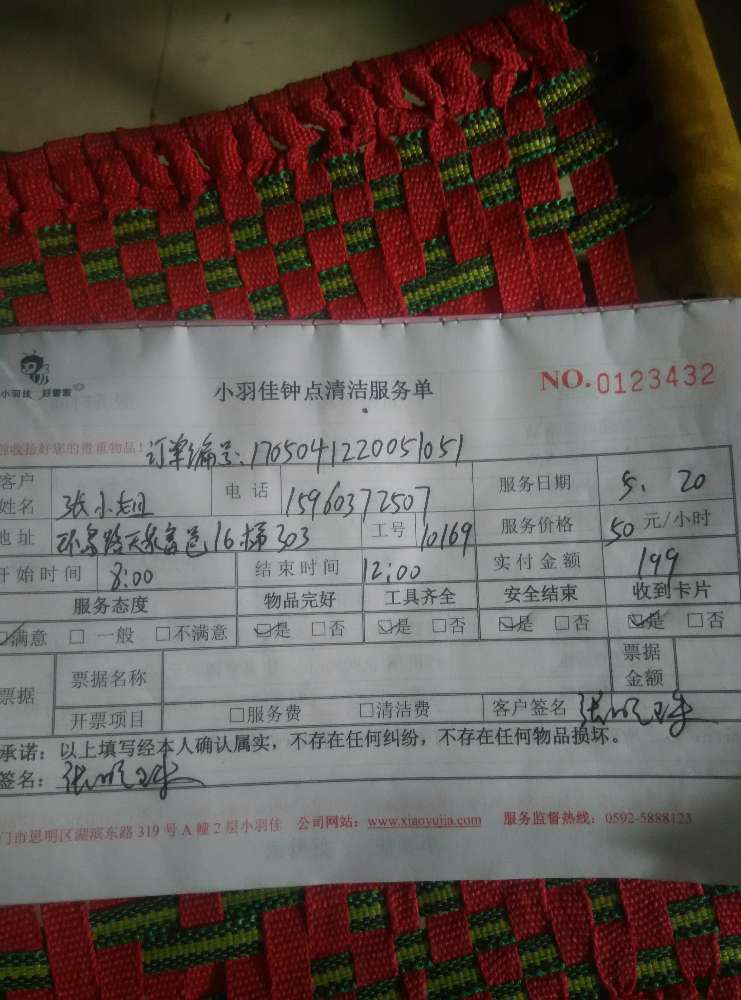 小羽佳 好管家
小羽佳钟点清洁服务单
NO.0123432
收拾好您的贵重物品!
订单编号:1705041220051051
客户姓名 张小姐 电话 15960372507 服务日期 5. 20
地址 16梯303 工号 10169 服务价格 50元/小时
开始时间 8:00 结束时间 12:00 实付金额 199
服务态度 物品完好 工具齐全 安全结束 收到卡片
☑满意 □一般 □不满意 ☑是 □否 ☑是 □否 ☑是 □否 ☑是 □否
票据 票据名称 票据金额
开票项目 □服务费 □清洁费 客户签名
承诺:以上填写经本人确认属实,不存在任何纠纷,不存在任何物品损坏。
签名:
门市思明区湖滨东路319号A幢2层小羽佳 公司网站:www.xiaoyujia.com 服务监督热线:0592-5888123